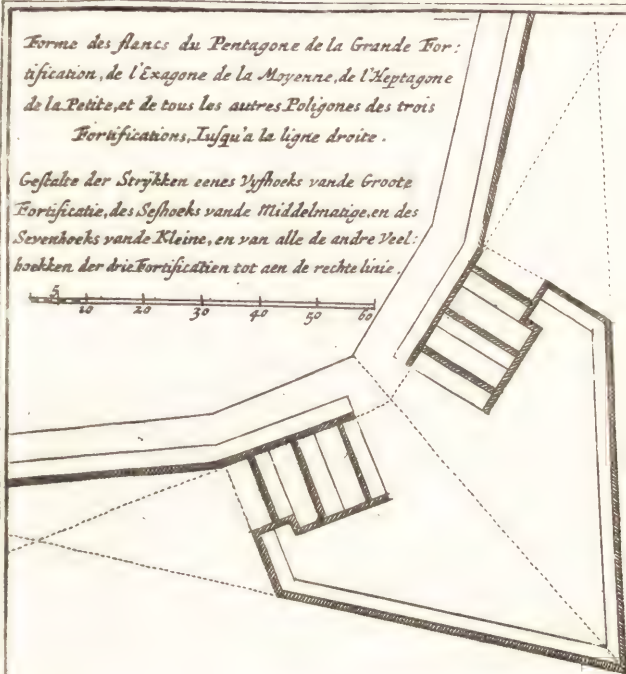 Forme des flancs du Pentagone de la Grande For:
tification, de l'Exagone de la Moyenne, de l'Heptagone
de la Petite, et de tous les autres Poligones des trois
Fortifications, Jusqu'a la ligne droite.
Gestalte der Strÿkken eenes Vyfhoeks vande Groote
Fortificatie, des Seshoeks vande Middelmatige, en des
Sevenhoeks vande Kleine, en van alle de andre Veel:
hoekken der drie Fortificatien tot aen de rechte linie.
5 10 20 30 40 50 60